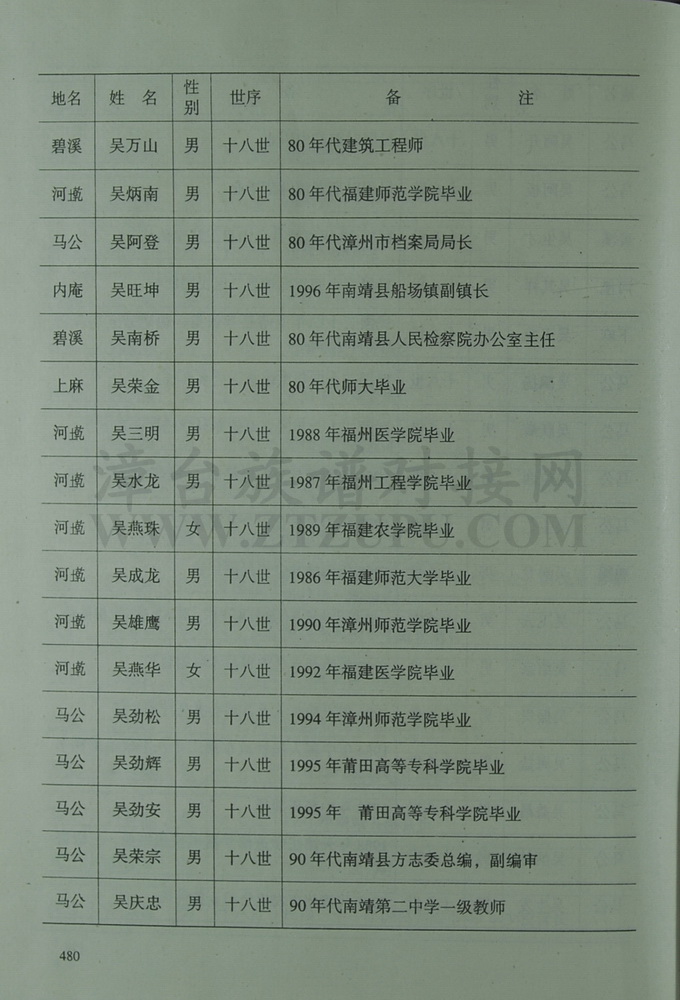 地名 姓 名 性别 世序 备 注
碧溪 吴万山 男 十八世 80年代建筑工程师
河榄 吴炳南 男 十八世 80年代福建师范学院毕业
马公 吴阿登 男 十八世 80年代漳州市档案局局长
内庵 吴旺坤 男 十八世 1996年南靖县船场镇副镇长
碧溪 吴南桥 男 十八世 80年代南靖县人民检察院办公室主任
上麻 吴荣金 男 十八世 80年代师大毕业
河榄 吴三明 男 十八世 1988年福州医学院毕业
河榄 吴水龙 男 十八世 1987年福州工程学院毕业
河榄 吴燕珠 女 十八世 1989年福建农学院毕业
河榄 吴成龙 男 十八世 1986年福建师范大学毕业
河榄 吴雄鹰 男 十八世 1990年漳州师范学院毕业
河榄 吴燕华 女 十八世 1992年福建医学院毕业
马公 吴劲松 男 十八世 1994年漳州师范学院毕业
马公 吴劲辉 男 十八世 1995年莆田高等专科学院毕业
马公 吴劲安 男 十八世 1995年 莆田高等专科学院毕业
马公 吴荣宗 男 十八世 90年代南靖县方志委总编，副编审
马公 吴庆忠 男 十八世 90年代南靖第二中学一级教师
480
漳台族谱对接网
WWW.ZTZUPU.COM